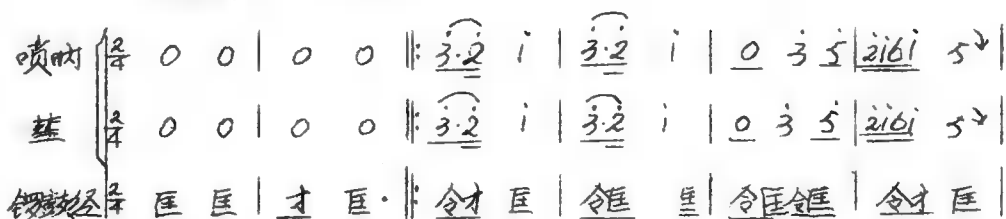 唢呐 2/4 0 0 | 0 0 ‖: 3̇·2̇ 1̇ | 3̇·2̇ 1̇ | 0 3̇ 5̇ | 2̇1̇61̇ 5↘ |
2/4 0 0 | 0 0 ‖: 3̇·2̇ 1̇ | 3̇·2̇ 1̇ | 0 3̇ 5̇ | 2̇1̇61̇ 5↘ |
锣鼓经 2/4 匡 匡 | 才 匡· ‖: 令才 匡 | 令匡 匡 | 令匡令匡 | 令才 匡 |